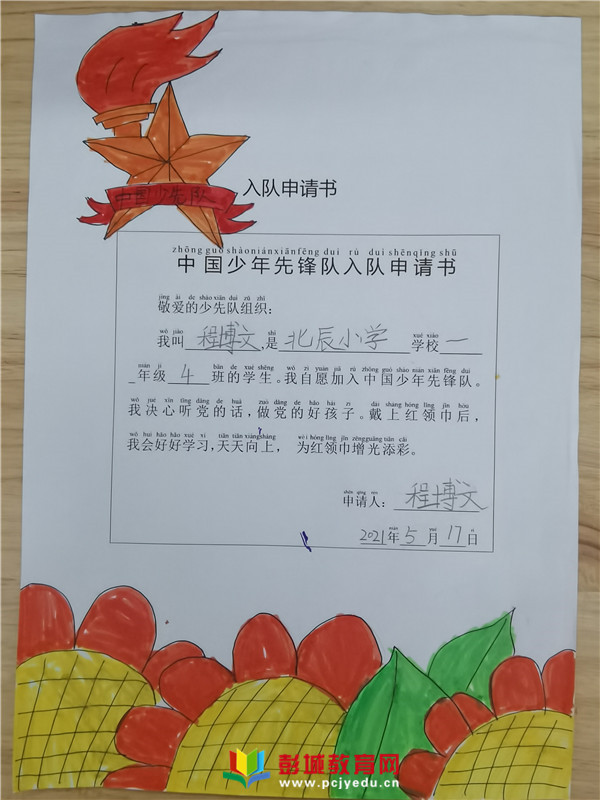 中国少先队
入队申请书
zhōng guó shào nián xiān fēng duì rù duì shēn qǐng shū
中国少年先锋队入队申请书
jìng ài de shào xiān duì zǔ zhī
敬爱的少先队组织：
wǒ jiào shì xué xiào
我叫 程博文 ,是 北辰小学 学校 一
nián jí bān de xué shēng wǒ zì yuàn jiā rù zhōng guó shào nián xiān fēng duì
年级 4 班的学生。我自愿加入中国少年先锋队。
wǒ jué xīn tīng dǎng de huà zuò dǎng de hǎo hái zi dài shàng hóng lǐng jīn hòu
我决心听党的话，做党的好孩子。戴上红领巾后，
wǒ huì hǎo hǎo xué xí tiān tiān xiàng shàng wèi hóng lǐng jīn zēng guāng tiān cǎi
我会好好学习，天天向上， 为红领巾增光添彩。
shēn qǐng rén
申请人： 程博文
nián yuè rì
2021年 5 月 17 日
彭城教育网
www.pcjyedu.cn